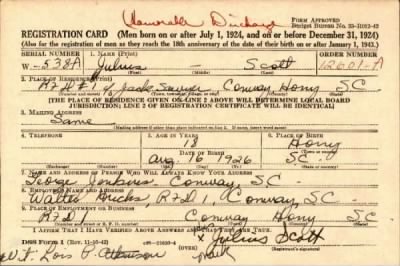 Honorable Discharge
FORM APPROVED
Budget Bureau No. 33-R012-42
REGISTRATION CARD (Men born on or after July 1, 1924, and on or before December 31, 1924)
(Also for the registration of men as they reach the 18th anniversary of the date of their birth on or after January 1, 1943.)
SERIAL NUMBER 1. NAME (Print) ORDER NUMBER
W-538A Julius - Scott 12601-A
(First) (Middle) (Last)
2. PLACE OF RESIDENCE (Print)
R7D#1 Jack Sawyer Conway Horry S.C.
[THE PLACE OF RESIDENCE GIVEN ON LINE 2 ABOVE WILL DETERMINE LOCAL BOARD
JURISDICTION; LINE 2 OF REGISTRATION CERTIFICATE WILL BE IDENTICAL]
3. MAILING ADDRESS
Same
4. TELEPHONE 5. AGE IN YEARS 6. PLACE OF BIRTH
18 Horry
DATE OF BIRTH
Aug. 16 1926 S.C.
7. NAME AND ADDRESS OF PERSON WHO WILL ALWAYS KNOW YOUR ADDRESS
George Jenkins Conway, S.C.
8. EMPLOYER'S NAME AND ADDRESS
Walter R7D 1, Conway, S.C.
9. PLACE OF EMPLOYMENT OR BUSINESS
R7D1 Conway Horry S.C.
I AFFIRM THAT I HAVE VERIFIED ABOVE ANSWERS AND THAT THEY ARE TRUE.
DSS Form 1 (Rev. 11-16-42) x Julius Scott
Wt. Lois P. Atkinson mark